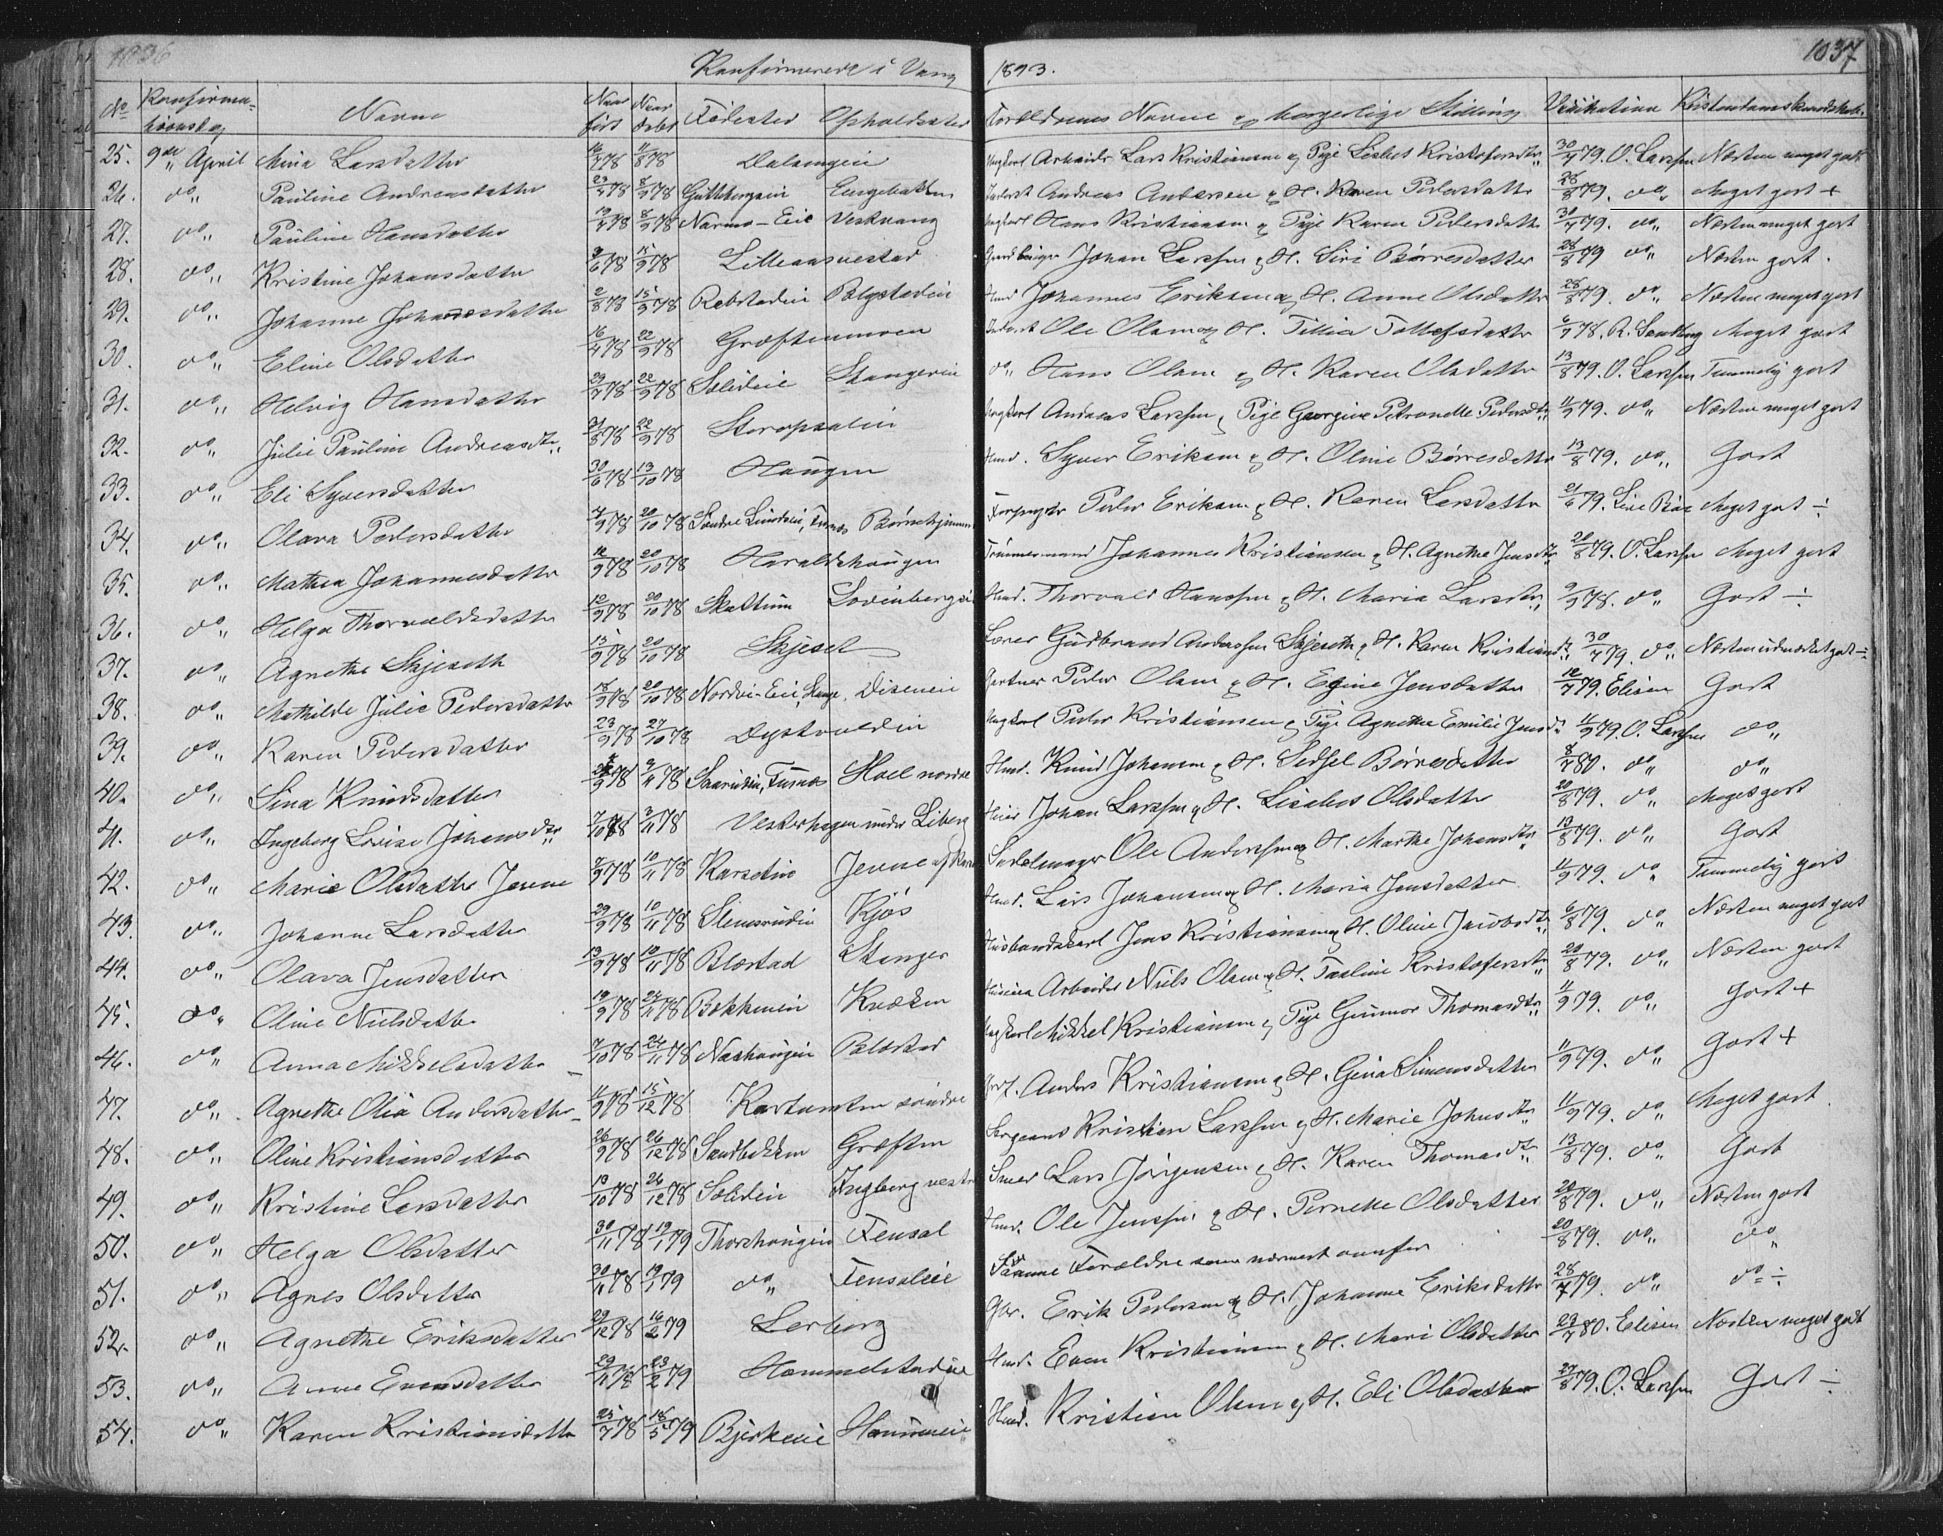 1036
Konfirmerede i Vang
1893.
1037
No Konfirmationsdag Navne Naar født Naar døbt Fødested Opholdssted Forældrenes Navne og borgerlige Stilling Visitation Kristendomskundskab
25. 9de April Mina Larsdatter 16/7 78 11/8 78 Dalangeie Ungkarl Arbeider Lars Kristiansen og Pige Lisbet Kristofersdtr 30/7 79. O. Larssen Næsten meget godt
26. do Pauline Andreasdatter 23/7 78 8/9 78 Inderst Andreas Andersen og H. Karen Pedersdatter 28/8 79. do Meget godt +
27. do Pauline Hansdatter 19/7 78 8/9 78 Narmo-Eie Veskvang Ungkarl Hans Kristiansen og Pige Karen Pedersdatter 30/7 79. do Næsten meget godt
28. do Kristine Johansdatter 9/6 78 15/9 78 Lilleaasvestad Johan Larssen og H. Siri Børresdatter 28/8 79 do Næsten godt.
29. do Johanne Johannesdatter 2/8 78 15/9 78 Rebstadeie Bolystadeie Hmd Johannes Eriksen og H. Anne Olsdatter 28/8 79. do Næsten meget godt
30. do Eline Olsdatter 16/4 78 22/9 78 Grøftenmoen Inderst Ole Olsen og H. Tillia Tollefsdatter 6/9 78. R. Sandberg Meget godt
31. do Helvig Hansdatter 23/7 78 22/9 78 Solieie Stangerie do Hans Olsen og H. Karen Olsdatter 13/8 79. O. Larssen Temmelig godt
32. do Julie Pauline Andreasdtr. 31/8 78 22/9 78 Ungkarl Andreas Larssen og Pige Georgine Petronelle Pedersdtr 11/9 79. do Næsten meget godt
33. do Eli Syversdatter 30/6 78 13/10 78 Haugen Hmd. Syver Eriksen og H. Oline Børresdatter 13/8 79. do Godt
34. do Olava Pedersdatter 7/9 78 20/10 78 Søndre Lundeie, Furnes Peder Eriksen og H. Karen Larsdatter 21/6 79. Meget godt ÷
35. do Mathea Johannesdatter 12/9 78 20/10 78 Haraldshaugen Tømmermand Johannes Kristiansen og H. Agnethe Jensdtr 28/8 79. O. Larssen Meget godt
36. do Helga Thorvaldsdatter 12/9 78 20/10 78 Skattum Hmd. Thorvald Hanssen og H. Maria Larsdtr 9/9 78. do Godt ÷
37. do Agnethe Skjeseth 15/9 78 20/10 78 Skjeset Lærer Gudbrand Anderssen Skjeseth og H. Karen Kristiansdtr 30/7 79. do Næsten udmærket godt ÷
38. do Mathilde Julie Pedersdatter 15/9 78 20/10 78 Nordvi-Eie, Stange Diseneie Gartner Peder Olsen og H. Eline Jensdatter 12/7 79. Elisen Godt
39. do Karen Pedersdatter 23/9 78 27/10 78 Dystvoldeie Ungkarl Peder Kristiansen og Pige Agnethe Emilie Jensdtr 11/9 79. O. Larssen do
40. do Sina Knudsdatter 9/78 2/11 78 Furnes Hoel nordre Hmd. Knud Johansen og H. Sidsel Børresdatter 8/7 80. do do
41. do Ingeborg Lovise Johansdtr 7/10 78 3/11 78 Vesterhagen under Liberg Johan Larssen og H. Lisabet Olsdatter 20/8 79. do Meget godt
42. do Marie Olsdatter Jevne 7/9 78 10/11 78 Karsetin Jevne af Sadelmager Ole Anderssen og H. Marthe Johansdtr 19/8 79. do Godt
43. do Johanne Larsdatter 29/9 78 10/11 78 Slemsrudeie Kjos Hmd. Lars Johansen og H. Maria Jensdatter 11/9 79. do Temmelig godt
44. do Olava Jensdatter 13/9 78 10/11 78 Blæstad Stanger Husbondskarl Jens Kristiansen og H. Oline Jacobsdtr 6/8 79. do Næsten meget godt
45. do Oline Nielsdatter 19/9 78 24/11 78 Bekkeneie Kvæken Arbeider Niels Olsen og H. Pauline Kristofersdtr 20/8 79. do Næsten godt
46. do Anna Mikkelsdatter 7/10 78 24/11 78 Næshaugeie Blæstad Ungkarl Mikkel Kristiansen og Pige Gunnor Thomasdtr 11/9 79. do Godt +
47. do Agnethe Olia Andersdatter 11/9 78 15/12 78 Kartomten søndre Anders Kristiansen og H. Gina Simensdatter 11/9 79. do Godt +
48. do Oline Kristiansdatter 26/9 78 26/12 78 Sandbakken Grøften Sergeant Kristian Larssen og H. Marie Johnsdtr 11/9 79. do Meget godt.
49. do Kristine Larsdatter 13/10 78 26/12 78 Solieie Ingberg vestre Smed Lars Jørgensen og H. Karen Thomasdtr 13/8 79. do Godt
50. do Helga Olsdatter 30/11 78 19/1 79 Thorshaugeie Fensal Hmd. Ole Jenssen og H. Pernelle Olsdatter 20/8 79. do Næsten godt
51. do Agnes Olsdatter 30/11 78 19/1 79 do Fensaleie Samme Forældre som nærmest ovenfor 20/8 79. do do
52. do Agnethe Eriksdatter 29/12 78 16/2 79 Lerberg Gbr. Erik Pedersen og H. Johanne Eriksdatter 28/7 79. do do ÷
53. do Anne Evensdatter 29/11 78 23/2 79 Hommelstadeie Hmd. Even Kristiansen og H. Mari Olsdatter 29/7 80. Elisen Næsten meget godt
54. do Karen Kristiansdatter 25/7 78 18/5 79 Bjerkeeie Hmd. Kristian Olsen og H. Eli Olsdatter 27/8 79. O. Larssen Godt ÷